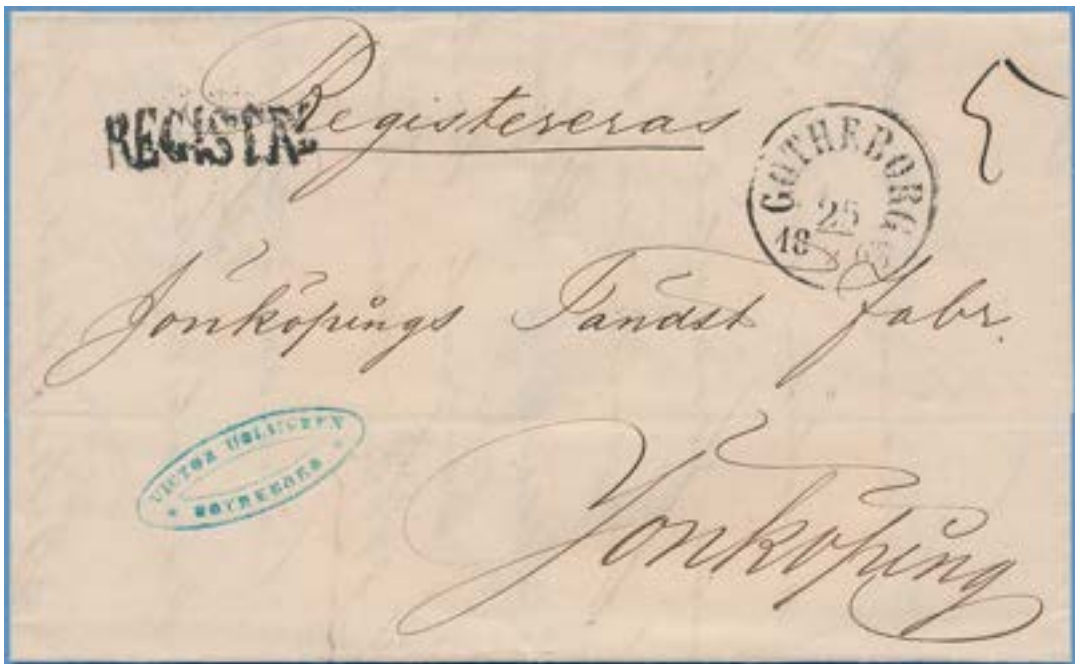 Registereras
REGISTR
GÖTHEBORG
25
18
Jönköpings Tändst fabr.
VICTOR
GÖTHEBORG
Jönköping